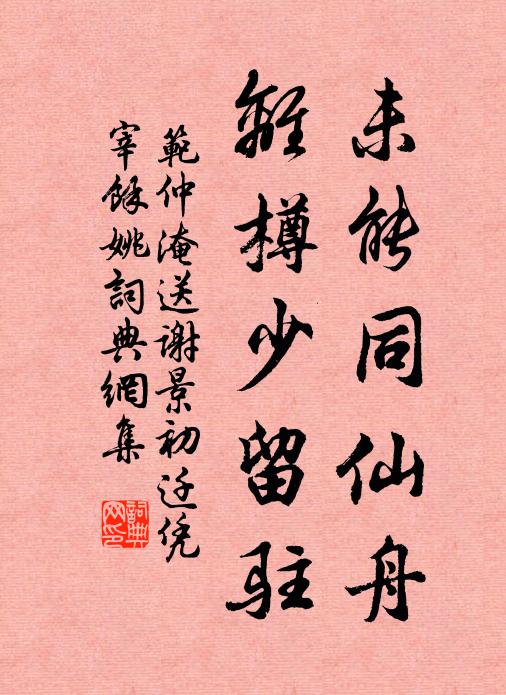 未能同仙舟
離樽少留駐
範仲淹送謝景初迁凭
宰餘姚詞典網集
詞典网印